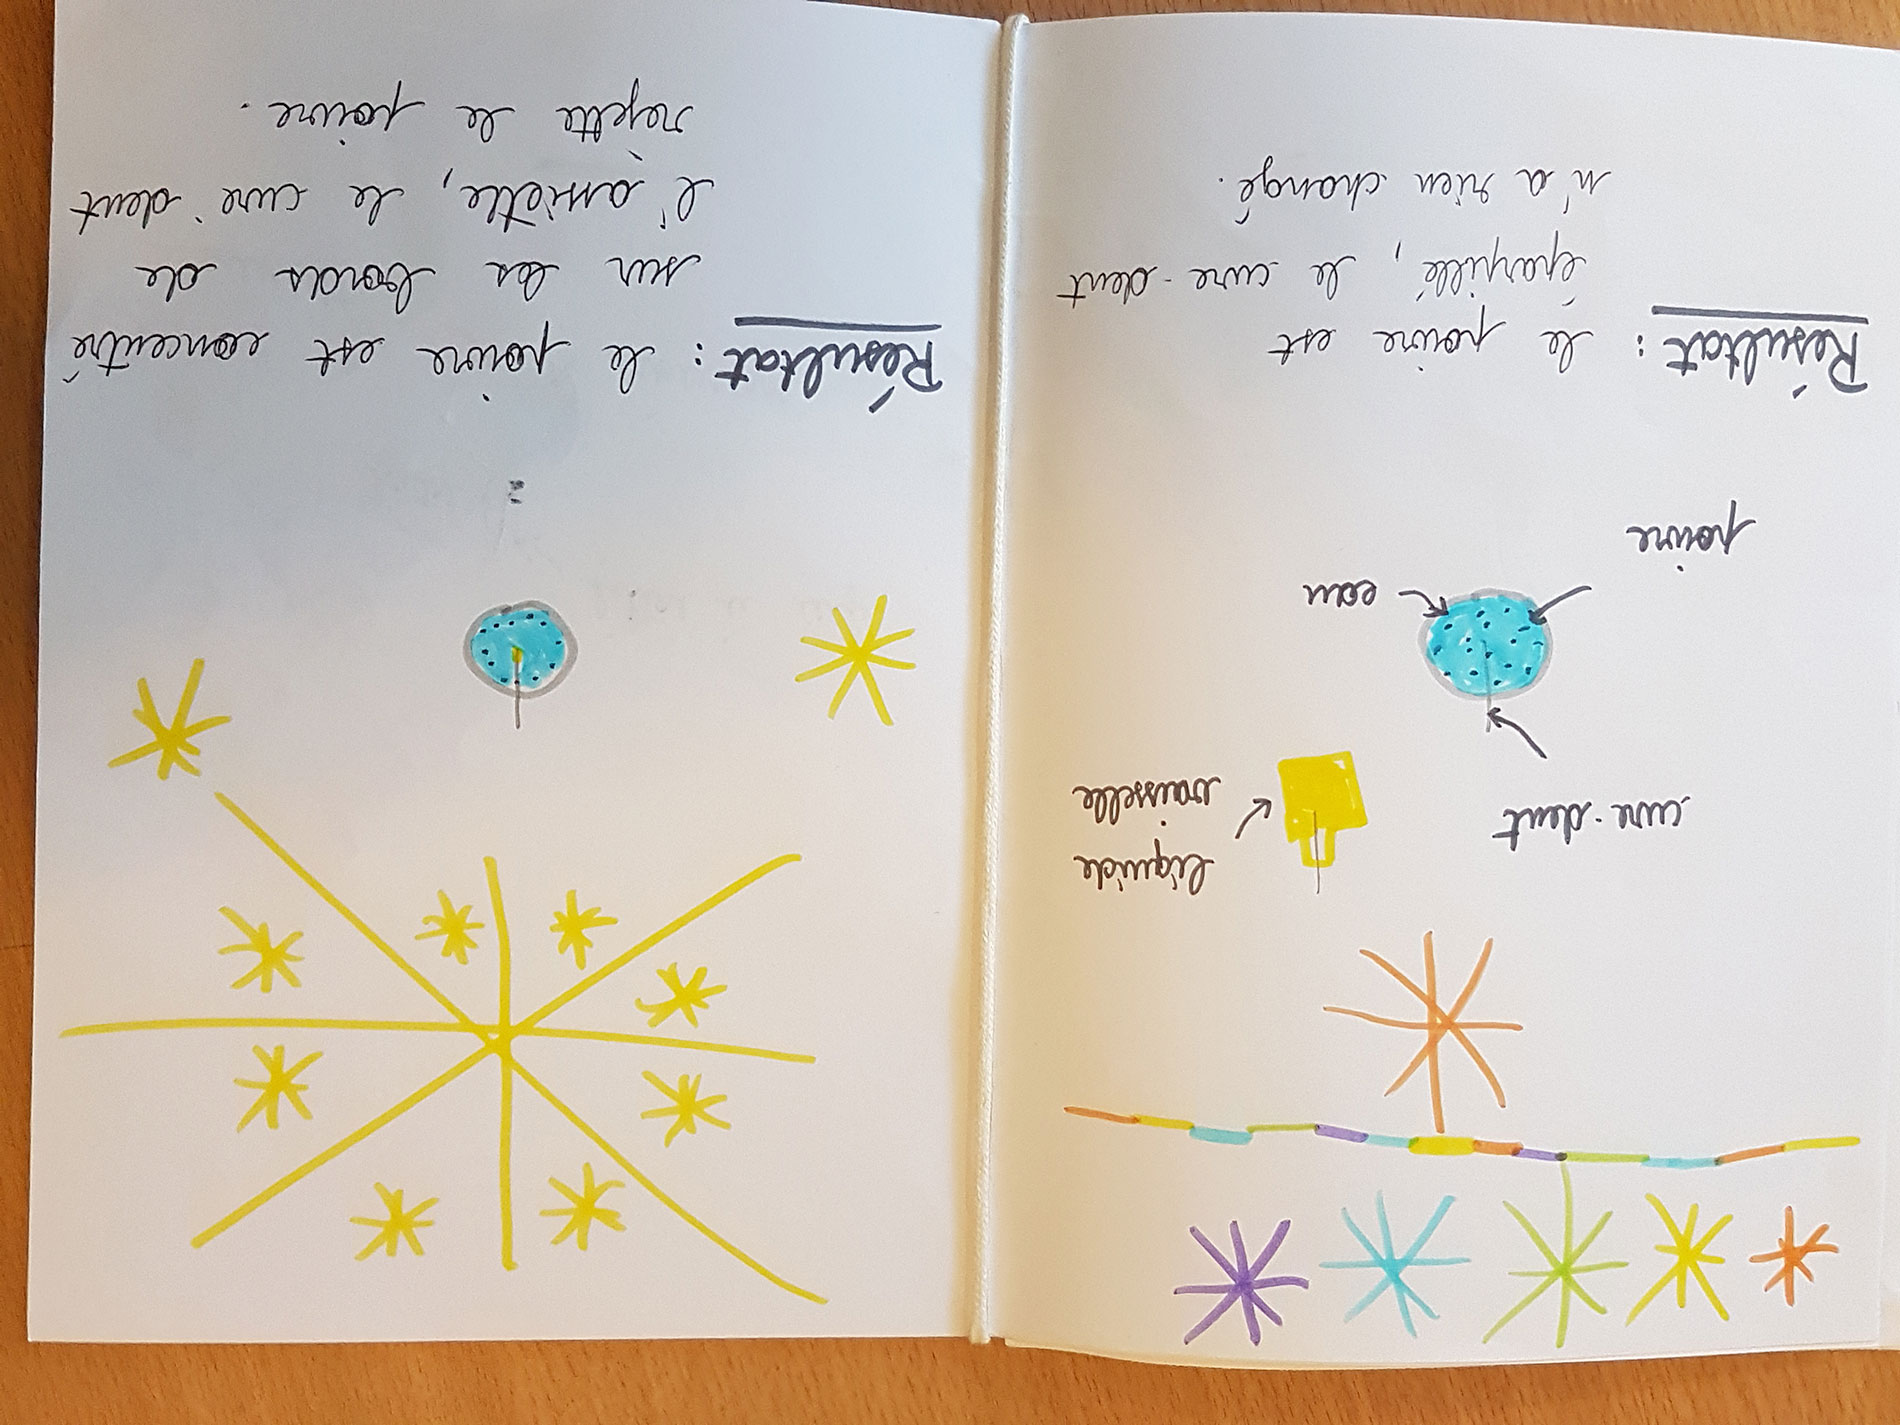 liquide
vaisselle
cure-dent
eau
poivre
Résultat : le poivre est
éparpillé, le cure-dent
n'a rien changé.
Résultat : le poivre est concentré
sur les bords de
l'assiette, le cure-dent
rejette le poivre.